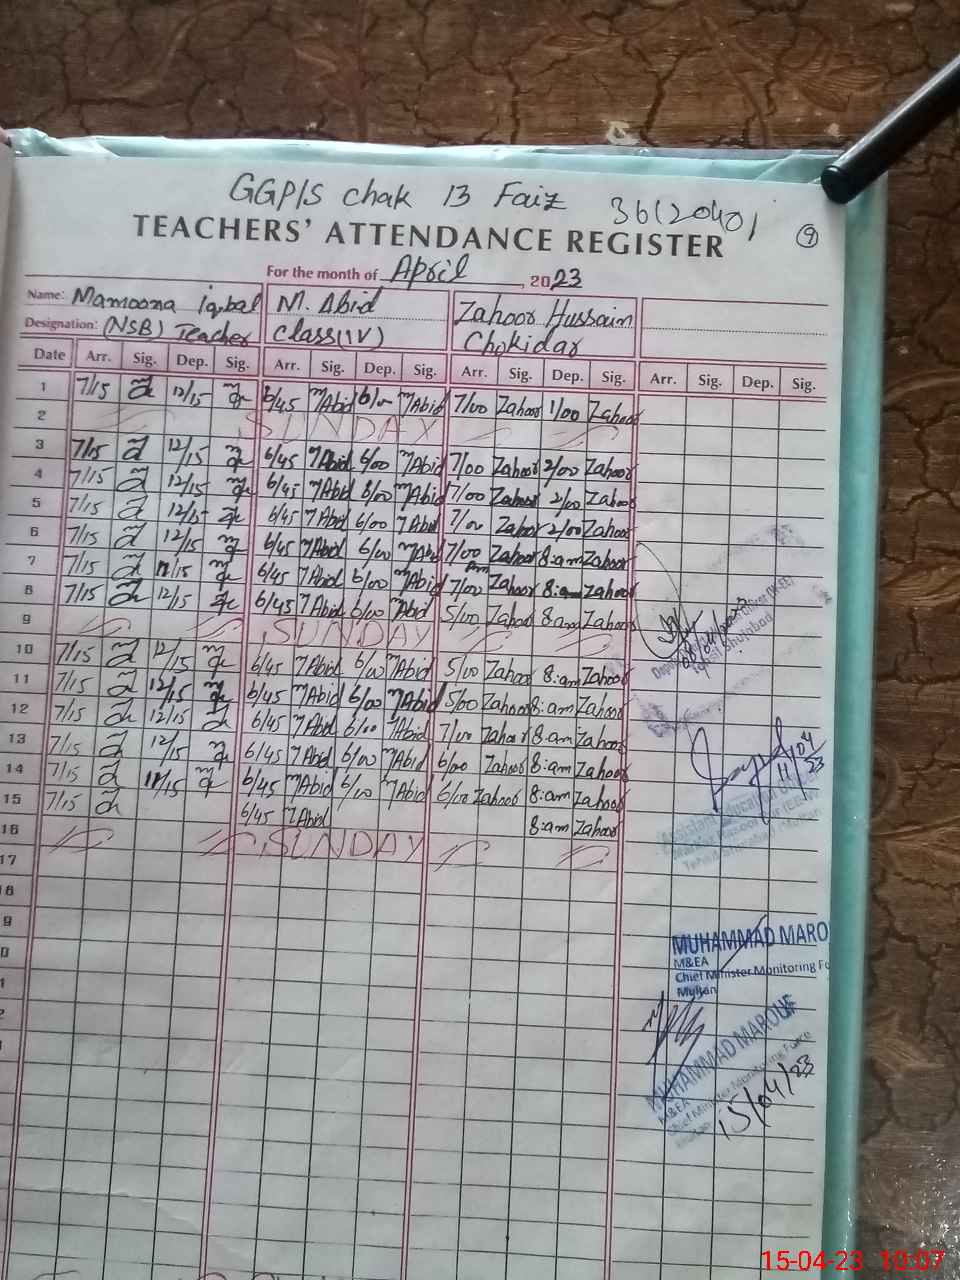 GGP/S Chak 13 Faiz 36120401
TEACHERS' ATTENDANCE REGISTER 9
For the month of April, 2023
Name: Mamoona iqbal M. Abid Zahoor Hussain
Designation: (NSB) Teacher Class(IV) Chokidar
Date Arr. Sig. Dep. Sig. Arr. Sig. Dep. Sig. Arr. Sig. Dep. Sig. Arr. Sig. Dep. Sig.
1 7/15 12/15 6/45 MAbid 6/00 MAbid 7/00 Zahoor 1/00 Zahoor
2 SUNDAY
3 7/15 12/15 6/45 MAbid 6/00 MAbid 7/00 Zahoor 2/00 Zahoor
4 7/15 12/15 6/45 MAbid 6/00 MAbid 7/00 Zahoor 2/00 Zahoor
5 7/15 12/15 6/45 MAbid 6/00 MAbid 7/00 Zahoor 2/00 Zahoor
6 7/15 12/15 6/45 MAbid 6/00 MAbid 7/00 Zahoor 8:am Zahoor
7 7/15 12/15 6/45 MAbid 6/00 MAbid 7/00 Zahoor 8:am Zahoor
8 7/15 12/15 6/45 MAbid 6/00 MAbid 5/00 Zahoor 8:am Zahoor
9 SUNDAY
10 7/15 12/15 6/45 MAbid 6/00 MAbid 5/00 Zahoor 8:am Zahoor
11 7/15 12/15 6/45 MAbid 6/00 MAbid 5/00 Zahoor 8:am Zahoor
12 7/15 12/15 6/45 MAbid 6/00 MAbid 7/00 Zahoor 8:am Zahoor
13 7/15 12/15 6/45 MAbid 6/00 MAbid 6/00 Zahoor 8:am Zahoor
14 7/15 11/15 6/45 MAbid 6/00 MAbid 6/00 Zahoor 8:am Zahoor
15 7/15 6/45 MAbid 8:am Zahoor
16 SUNDAY
17
18
9
0
1
2
08/04/2023
Tehsil Shujabad
11/04/23
Assistant Education Officer
MUHAMMAD MARO
M&EA
Chief Minister Monitoring Fo
Multan
MUHAMMAD MAROUF
M&EA
Chief Minister Monitoring Force
15/04/23
15-04-23 10:07